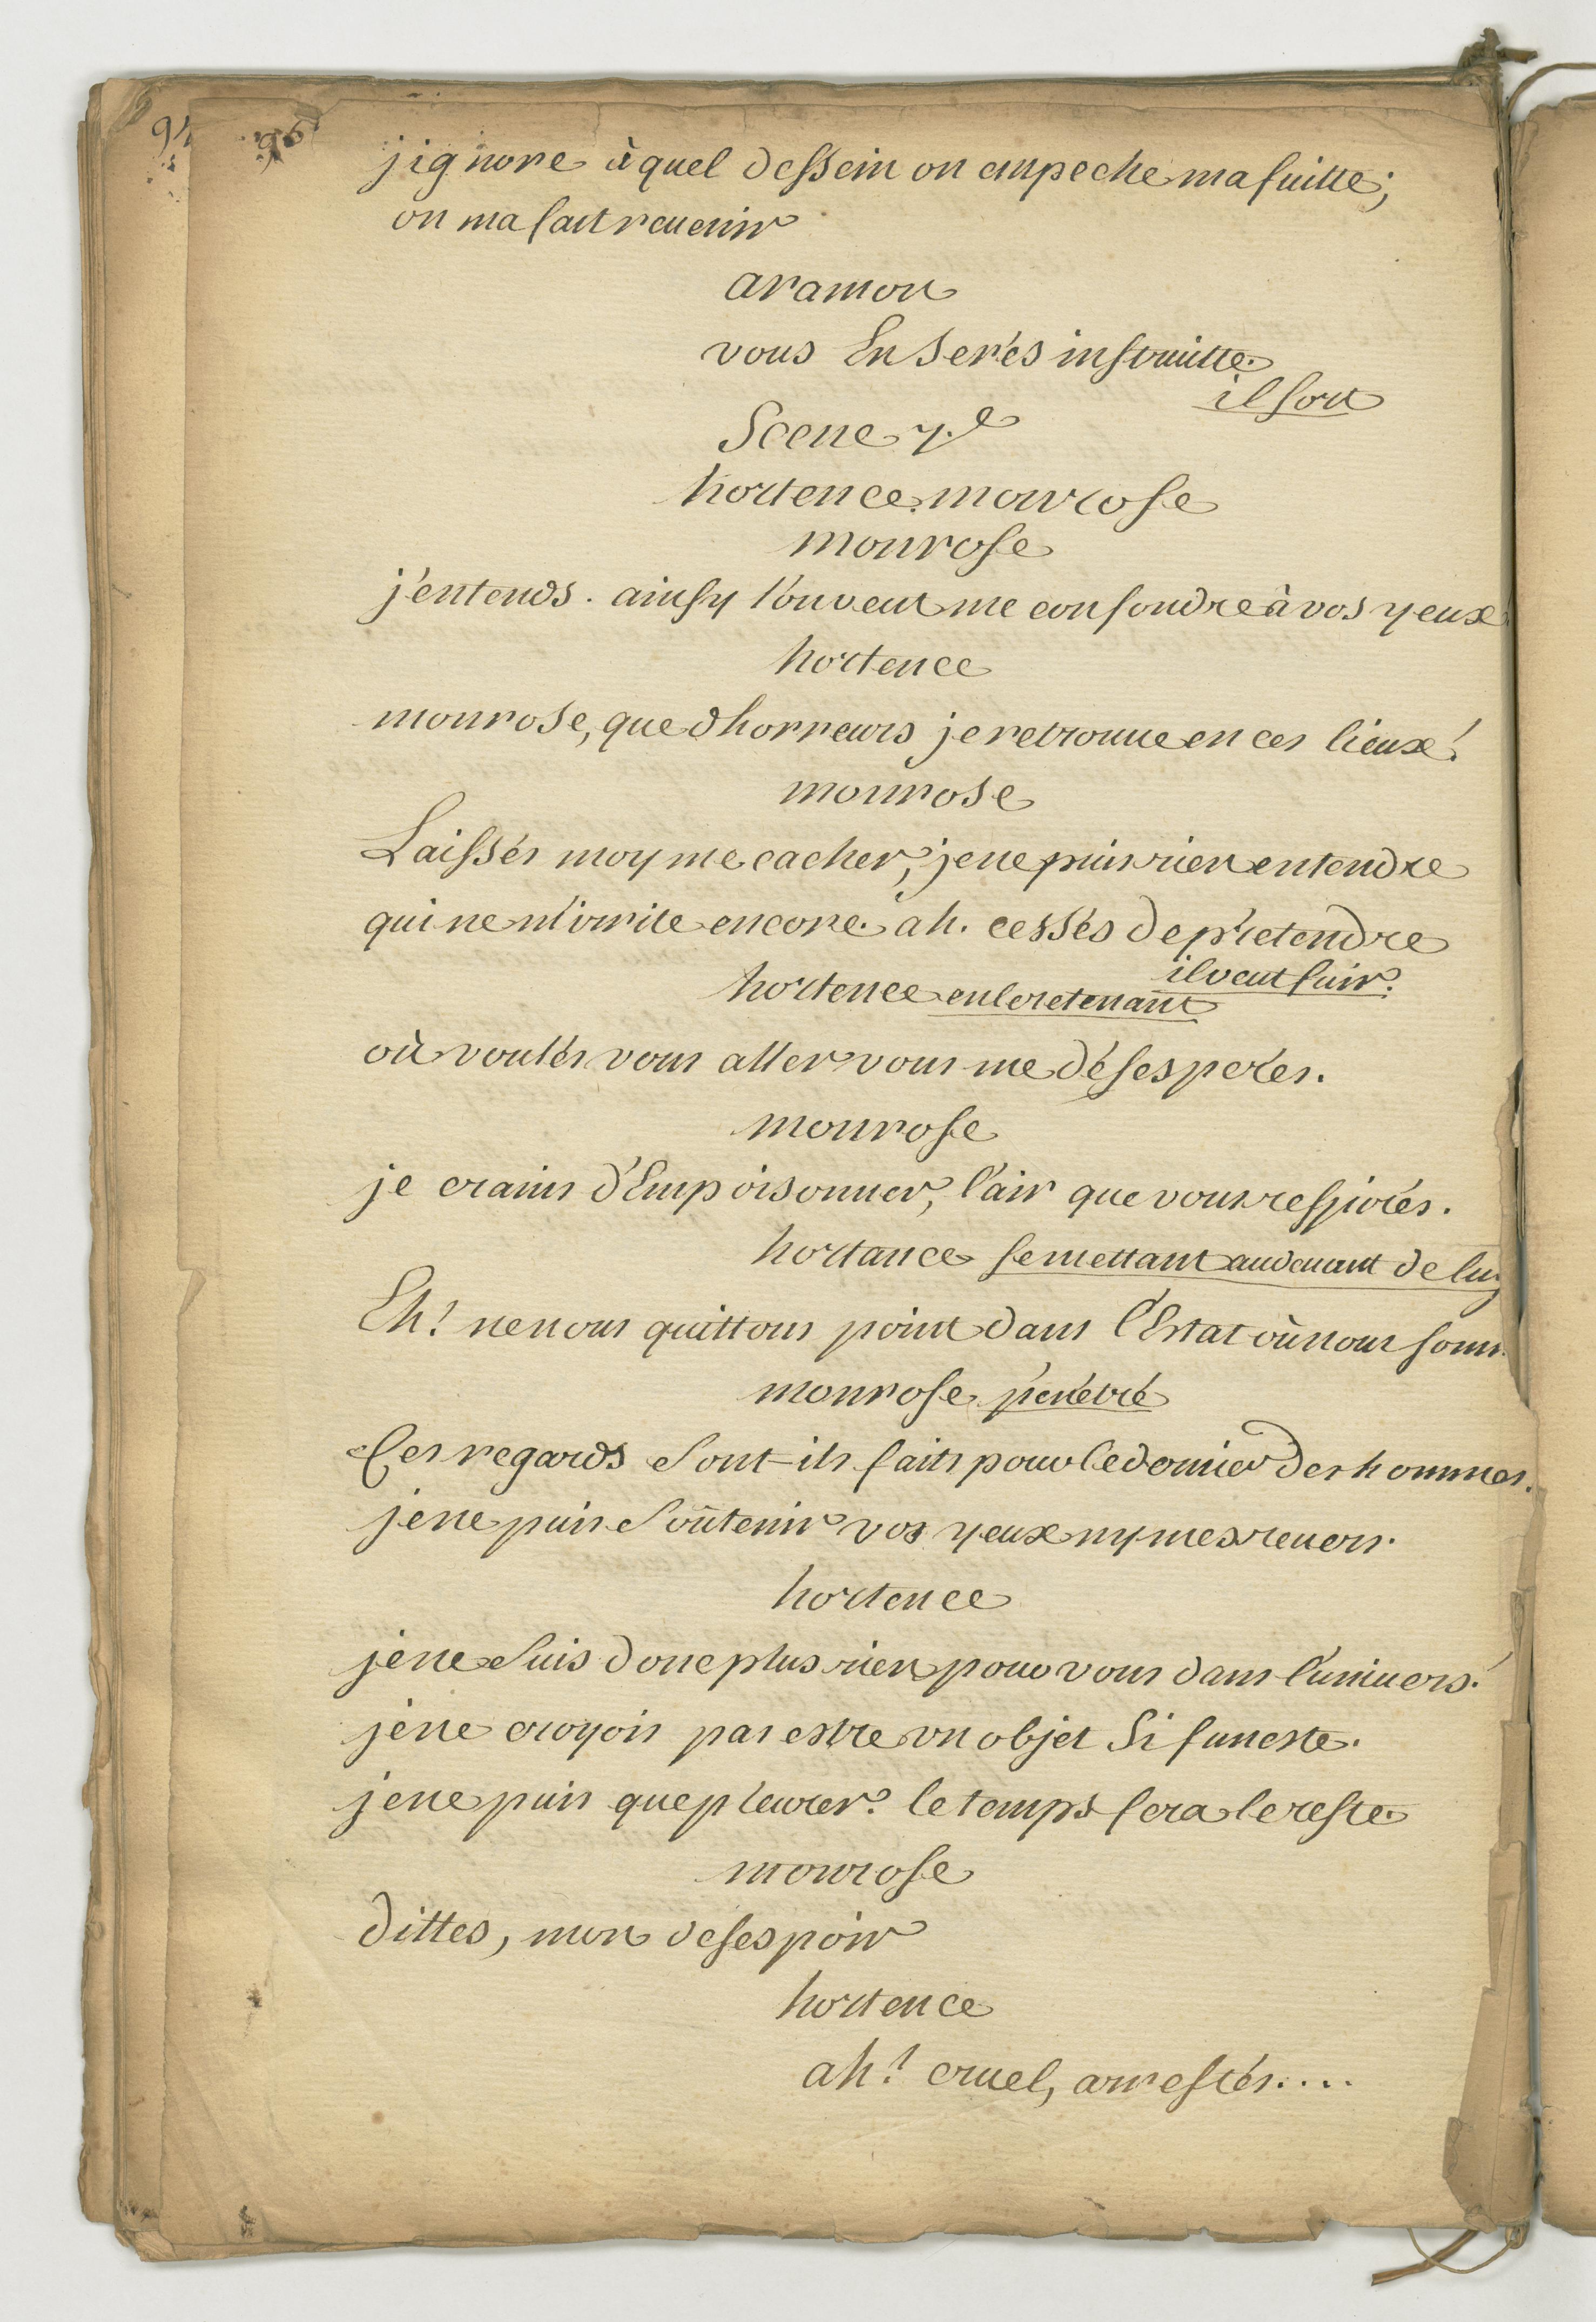 96
jignore à quel dessein on empeche ma fuitte;
on ma fait reuenir
aramon
vous En serés instruitte.
il sort
Scene 7.e
hortence. monrose
monrose
j'entends. ainsy l'on veut me confondre à vos yeux
hortence
monrose, que dhorreurs je retrouue en ces lieux!
monrose
Laissés moy me cacher, je ne puis rien entendre
qui ne m'irrite encore. ah. cessés de prétendre
il veut fuir.
hortence en le retenant
où voulés vous aller vous me désesperés.
monrose
je crains d'Empoisonner, l'air que vous respirés.
hortance se mettant audeuant de luy
Eh! ne nous quittons point dans l'Estat où nous somm
monrose pénétré
Ces regards sont-ils faits pour le dernier des hommes.
je ne puis soûtenir vos yeux ny mes reuers.
hortence
je ne suis donc plus rien pour vous dans l'uniuers!
je ne croyois pas estre vn objet si funeste.
je ne puis que pleurer. le temps fera le reste
monrose
dittes, mon desespoir
hortence
ah! cruel, arrestés....